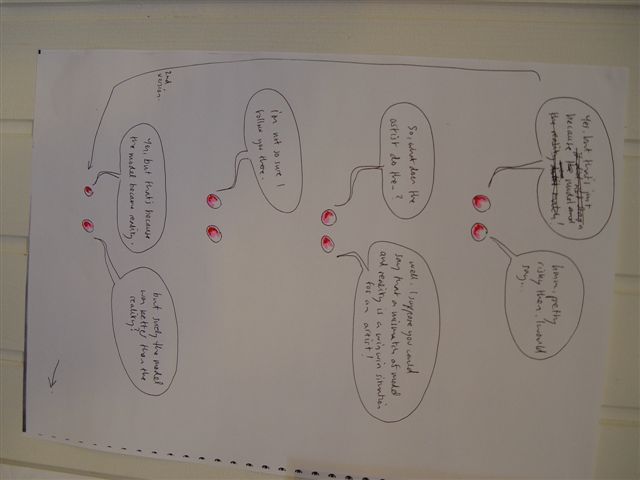 Yes, but that's just
because the model and
the reality didn't match!
hmm, pretty
risky then, I would
say...
So, what does the
artist do then..?
well, I suppose you could
say that a mismatch of model
and reality is a win win situation
for an artist!
i'm not so sure I
follow you there.
2nd
version.
Yes, but that's because
the model became reality.
but surely the model
was better than the
reality?